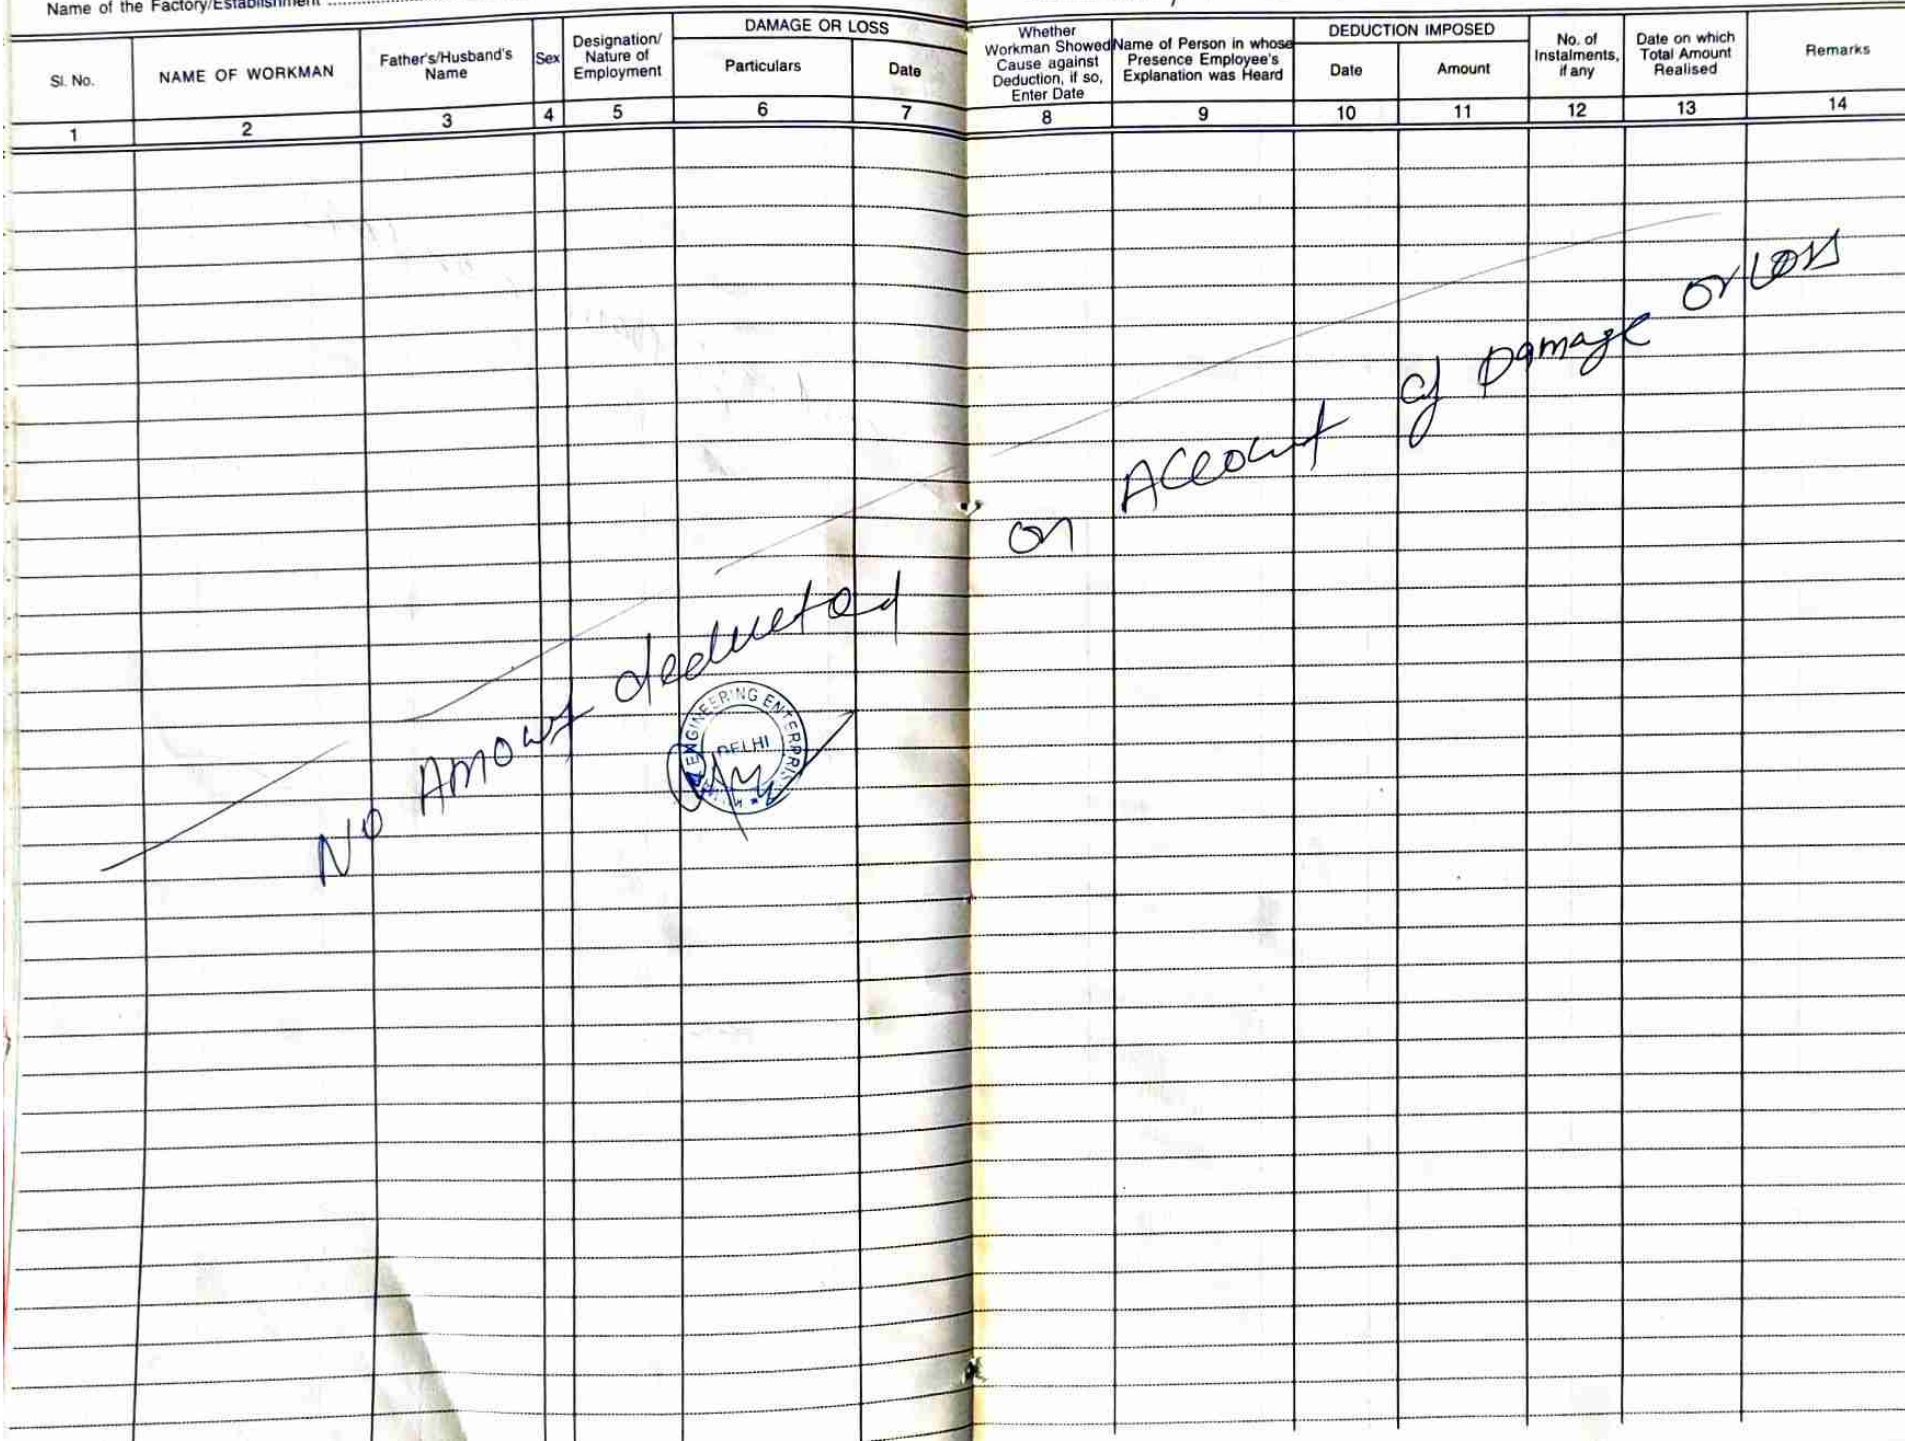 Name of the Factory/Establishment
Sl. No.
NAME OF WORKMAN
Father's/Husband's
Name
Sex
Designation/
Nature of
Employment
DAMAGE OR LOSS
Particulars
Date
Whether
Workman Showed
Cause against
Deduction, if so,
Enter Date
Name of Person in whose
Presence Employee's
Explanation was Heard
DEDUCTION IMPOSED
Date
Amount
No. of
Instalments,
if any
Date on which
Total Amount
Realised
Remarks
1 2 3 4 5 6 7 8 9 10 11 12 13 14
No Amount deducted on Account of Damage or Loss
ENGINEERING ENTERPRIS
DELHI